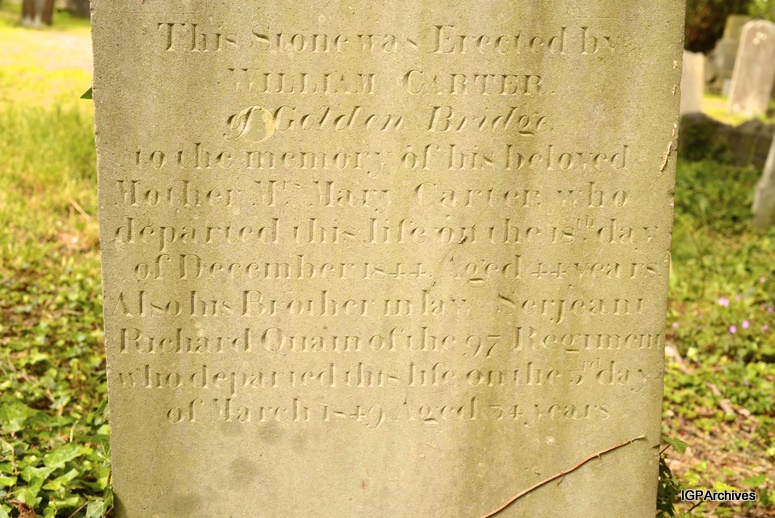 This Stone was Erected by
WILLIAM CARTER.
of Golden Bridge
to the memory of his beloved
Mother Mrs Mary Carter, who
departed this life on the 18th day
of December 1844, Aged 44 years
Also his Brother in law Serjeant
Richard Quain of the 97 Regiment
who departed this life on the 3rd day
of March 1849 Aged 34 years
IGPArchives